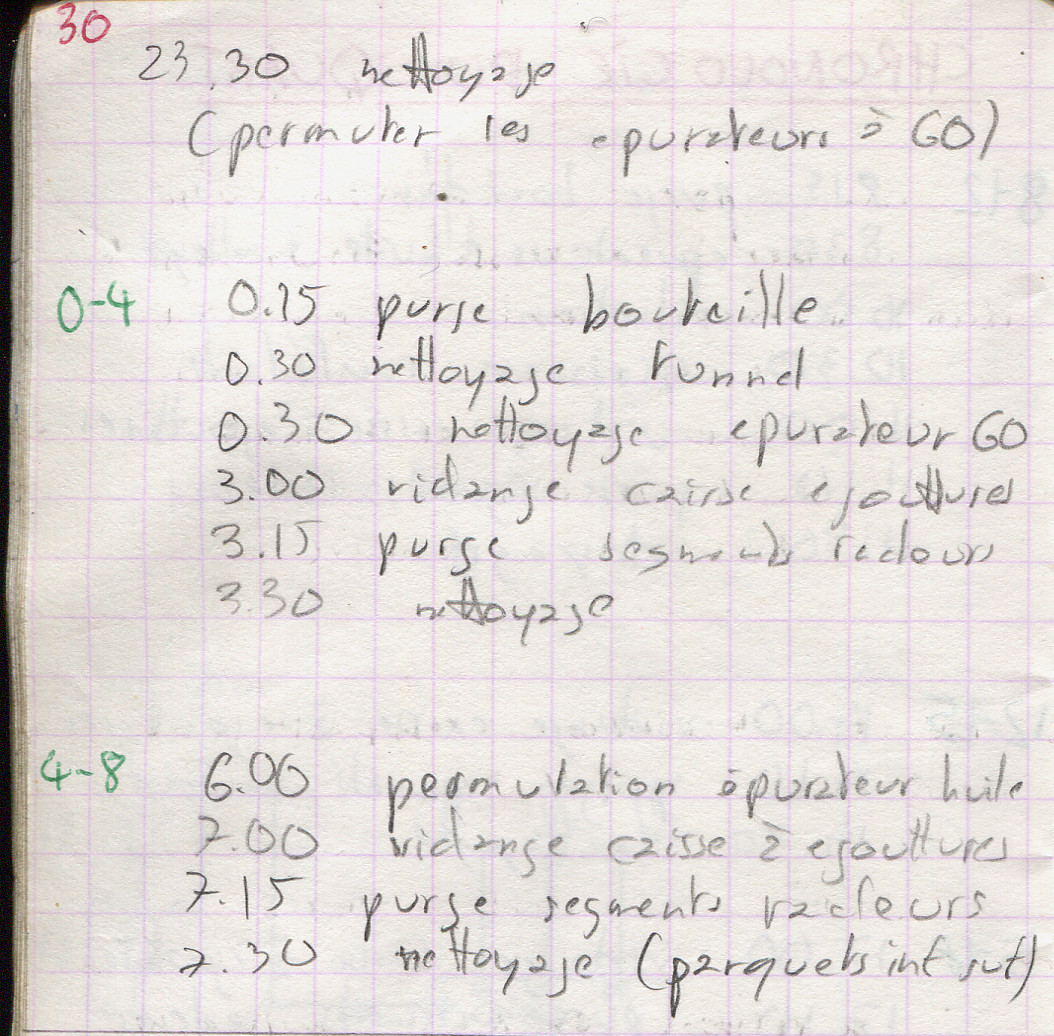 30
23.30 nettoyage
(permuter les epurateurs à GO)
0-4 0.15 purge bouteille
0.30 nettoyage tunnel
0.30 nettoyage epurateur GO
3.00 vidange caisse egouttures
3.15 purge segments racleurs
3.30 nettoyage
4-8 6.00 permutation épurateur huile
7.00 vidange caisse à egouttures
7.15 purge segments racleurs
7.30 nettoyage (parquets int sut)